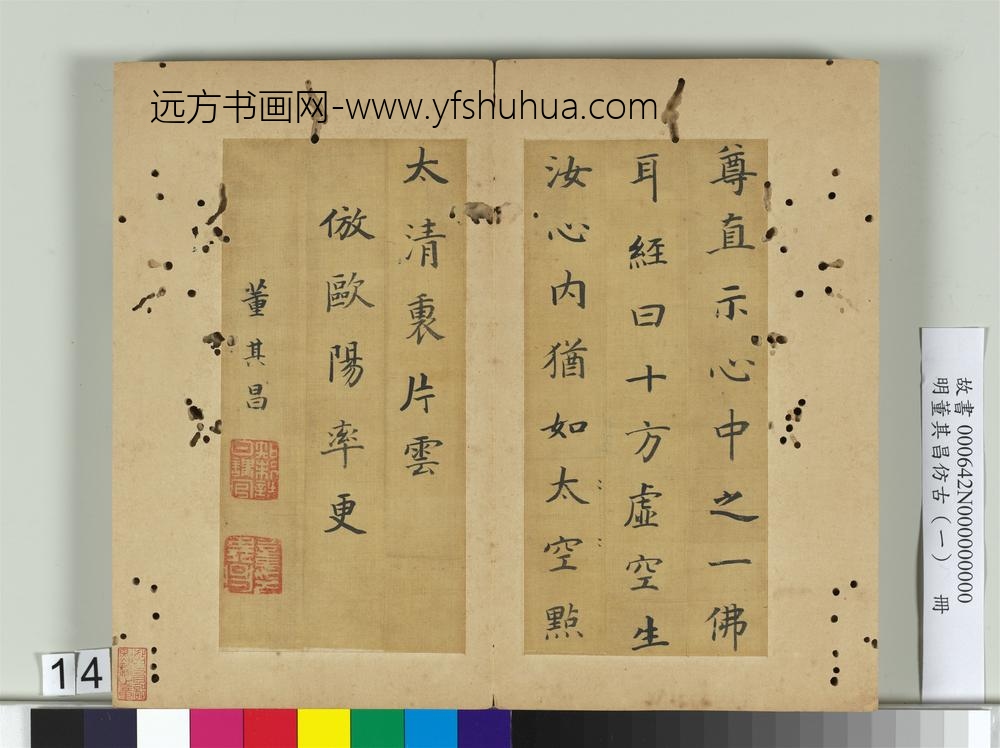 远方书画网-www.yfshuhua.com
尊直示心中之一佛
耳經曰十方虛空生
汝心內猶如太空點
太清裏片雲
倣歐陽率更
董其昌
故書 000642N000000000
明董其昌仿古（一） 冊
14